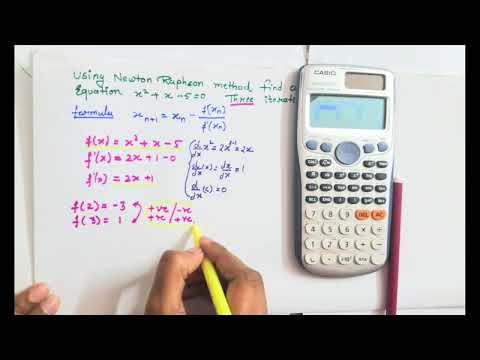 Using Newton Raphson method find a
Equation x² + x - 5 = 0 Three iterati
formula xₙ₊₁ = xₙ - f(xₙ)/f'(xₙ)
f(x) = x² + x - 5
f'(x) = 2x + 1 - 0
f'(x) = 2x + 1
d/dx x² = 2x²⁻¹ = 2x
d/dx (x) = dx/dx = 1
d/dx (c) = 0
f(2) = -3
f(3) = 1
+ve / -ve
+ve / +ve
CASIO
DEL AC